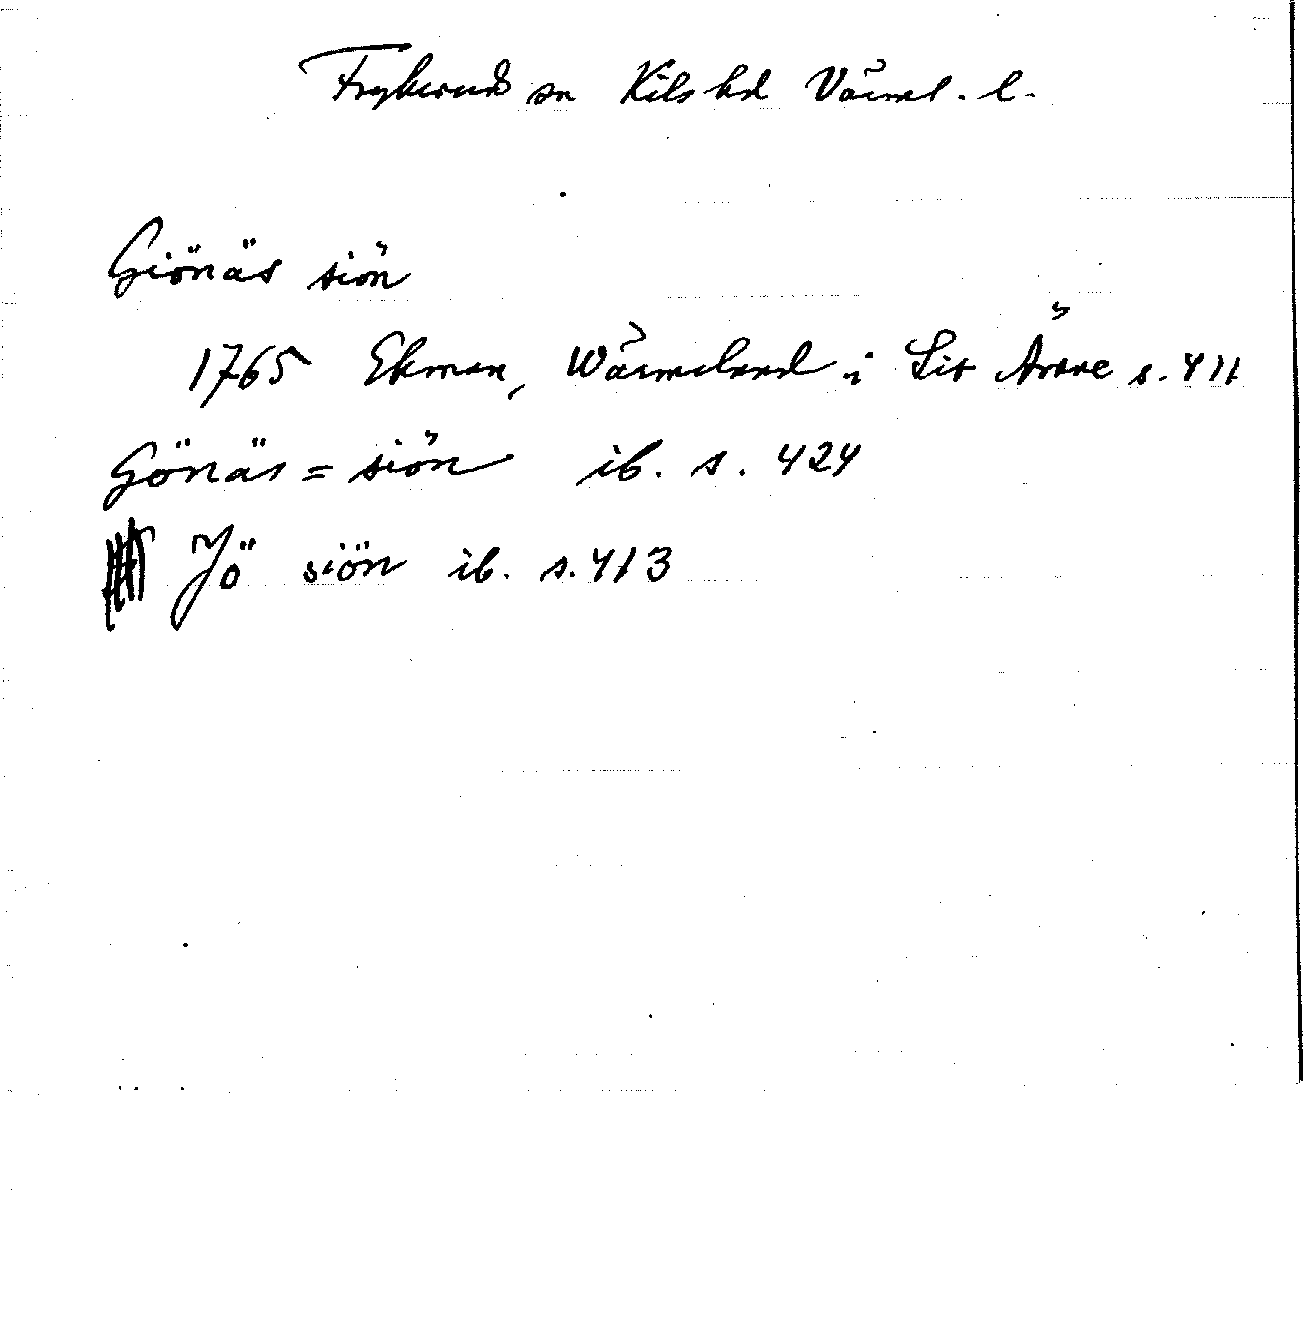 Frykerud sn Kils hd Värml. l.
Giönäs siön
1765 Ekman, Wärmeland i Sit Ämne s. 411
Gönäs = siön ib. s. 424
Jö siön ib. s. 413